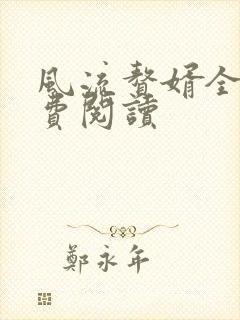 風流贅婿全
費閱讀
鄭永年